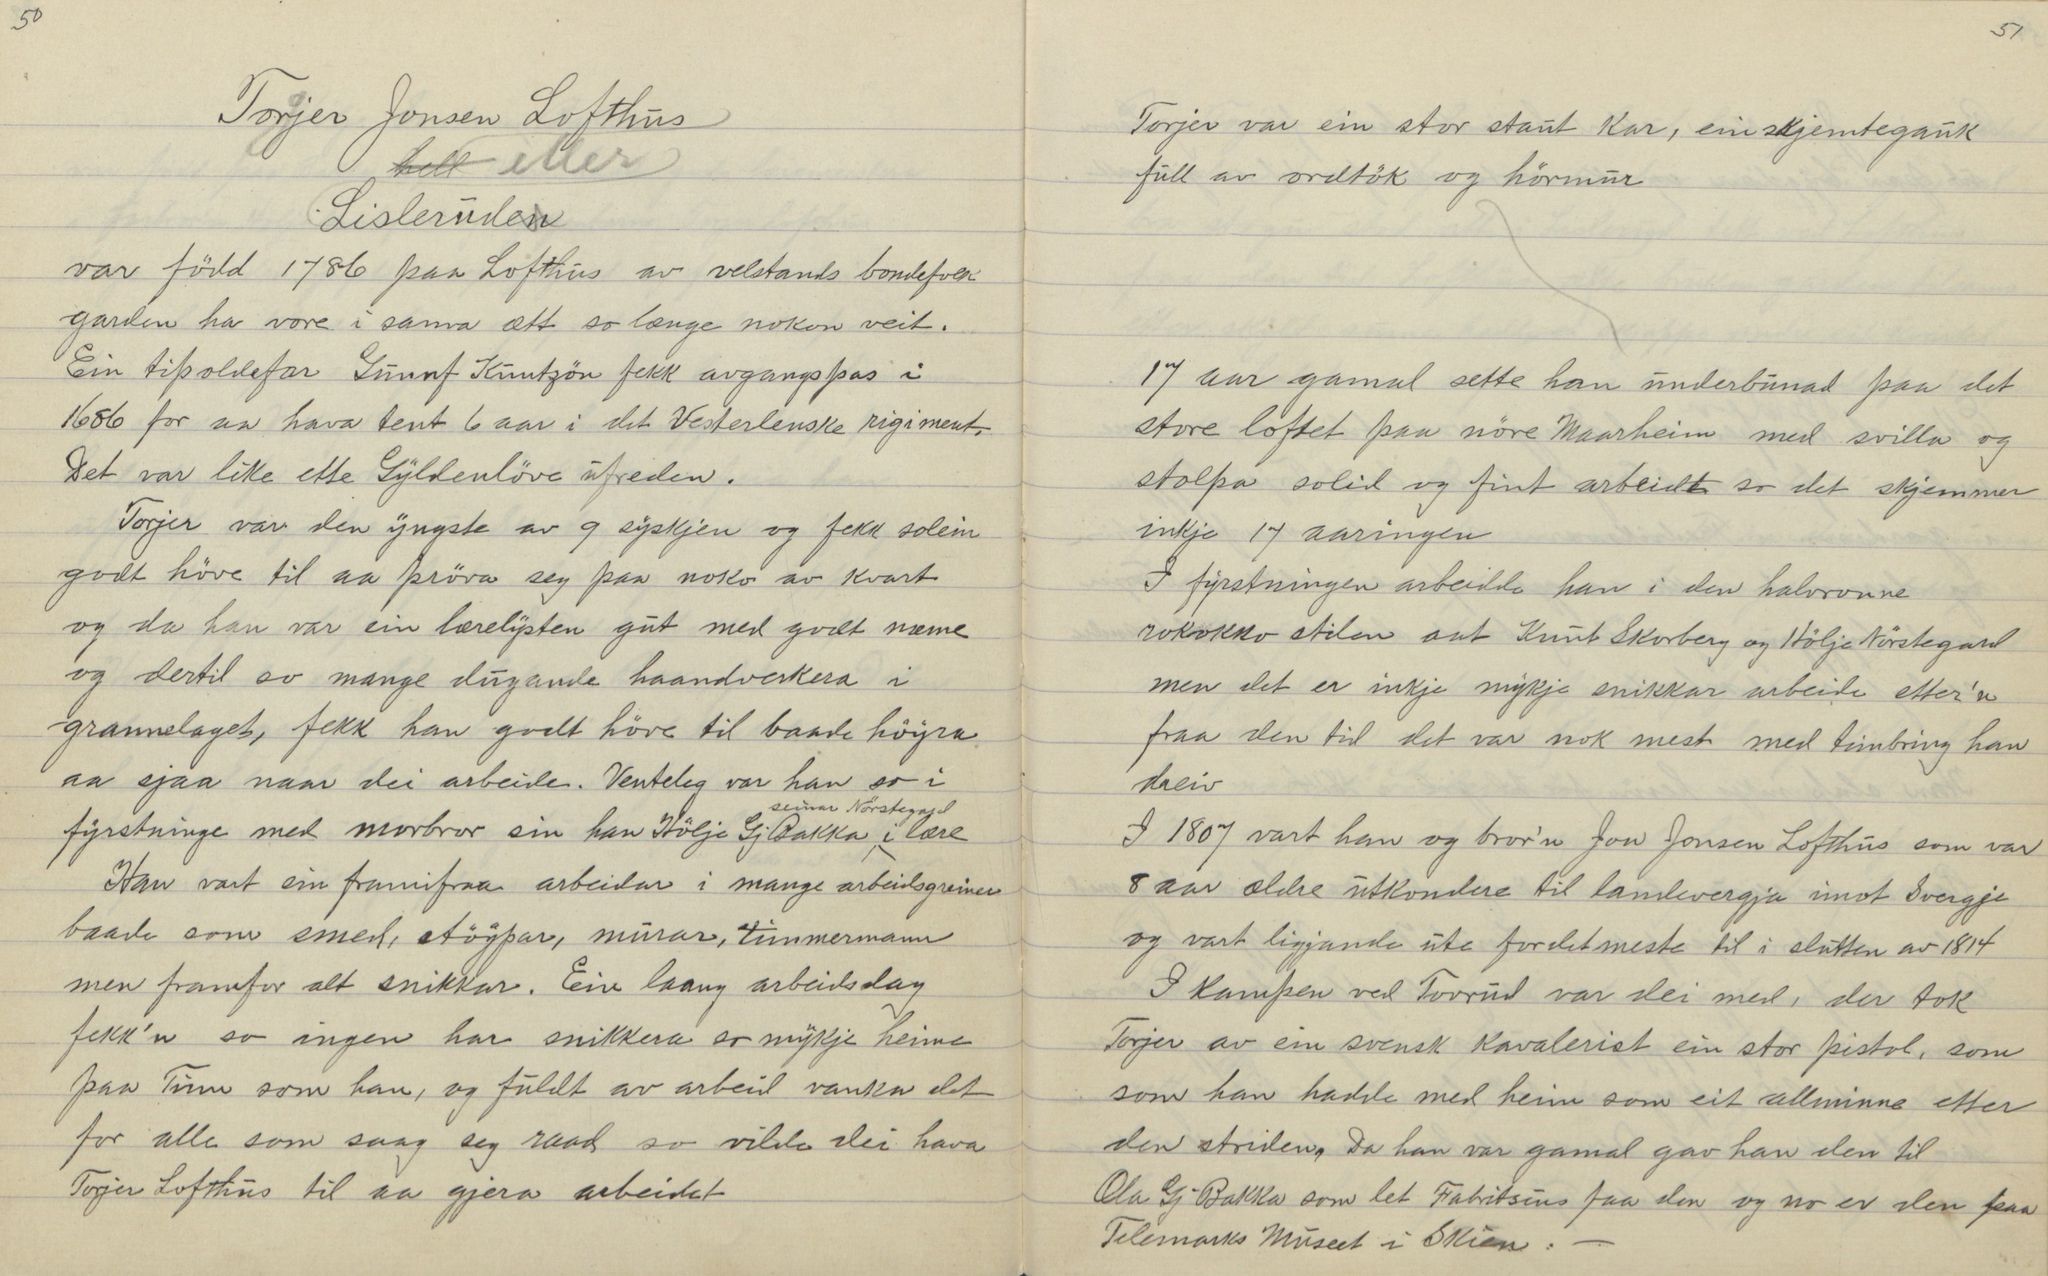 50
Torjer Jonsen Lofthus
hell eller
Lislerüden
var född 1786 paa Lofthüs av velstands bondefolk
garden ha vore i sama ætt so længe nokon veit.
Ein tipoldefar Gunnf Knutzön fekk avgangspas i
1686 for aa hava tent 6 aar i det Vesterlenske rigiment.
Det var like ette Gÿldenlöve üfreden.
Torjer var den ÿngste av 9 sÿskjen og fekk solein
godt höve til aa pröva seg paa noko av kvart
og da han var ein lærelÿsten güt med godt næme
og dertil so mange dügande haandverkera i
grannelaget, fekk han godt höve til baade höÿra
aa sjaa naar dei arbeide. Venteleg var han so i
seinar Nörstegard
fÿrstninge med morbror sin han Hölje Gj Bakka i lære
Han vart ein framifraa arbeidar i mange arbeidsgreiner
baade som smed, stöÿpar, mürar, timmermann
men framfor alt snikkar. Ein laang arbeidsdag
fekk'n so ingen har snikkera so mÿkje heime
paa Tinn som han, og füldt av arbeid vanka det
for alle som saag seg raad so vilde dei hava
Torjer Lofthüs til aa gjera arbeidet
51
Torjer var ein stor staüt kar, ein skjemtegaük
füll av ordtök og hörmür
17 aar gamal sette han ünderbünad paa det
store loftet paa nöre Maarheim med svilla og
stolpa solid og fint arbeidt so det skjemmer
inkje 17 aaringen
I fÿrstningen arbeidde han i den halvronne
rokokko stilen aat Knüt Skorberg og Hölje Nörstegard
men det er inkje mÿkje snikkar arbeide etter'n
fraa den tid det var nok mest med timbring han
dreiv
I 1807 vart han og bror'n Jon Jonsen Lofthüs som var
8 aar ældre ütkondere til landevergja imot Svergje
og vart liggjande üte fordetmeste til i slutten av 1814
I Kampen ved Toverud var dei med, der tok
Torjer av ein svensk kavalerist ein stor pistol, som
som han hadde med heim som eit allminne etter
den striden. Da han var gamal gav han den til
Ola Gj Bakka som let Fabritsius faa den og no er den paa
Telemarks Müseet i Skien. —